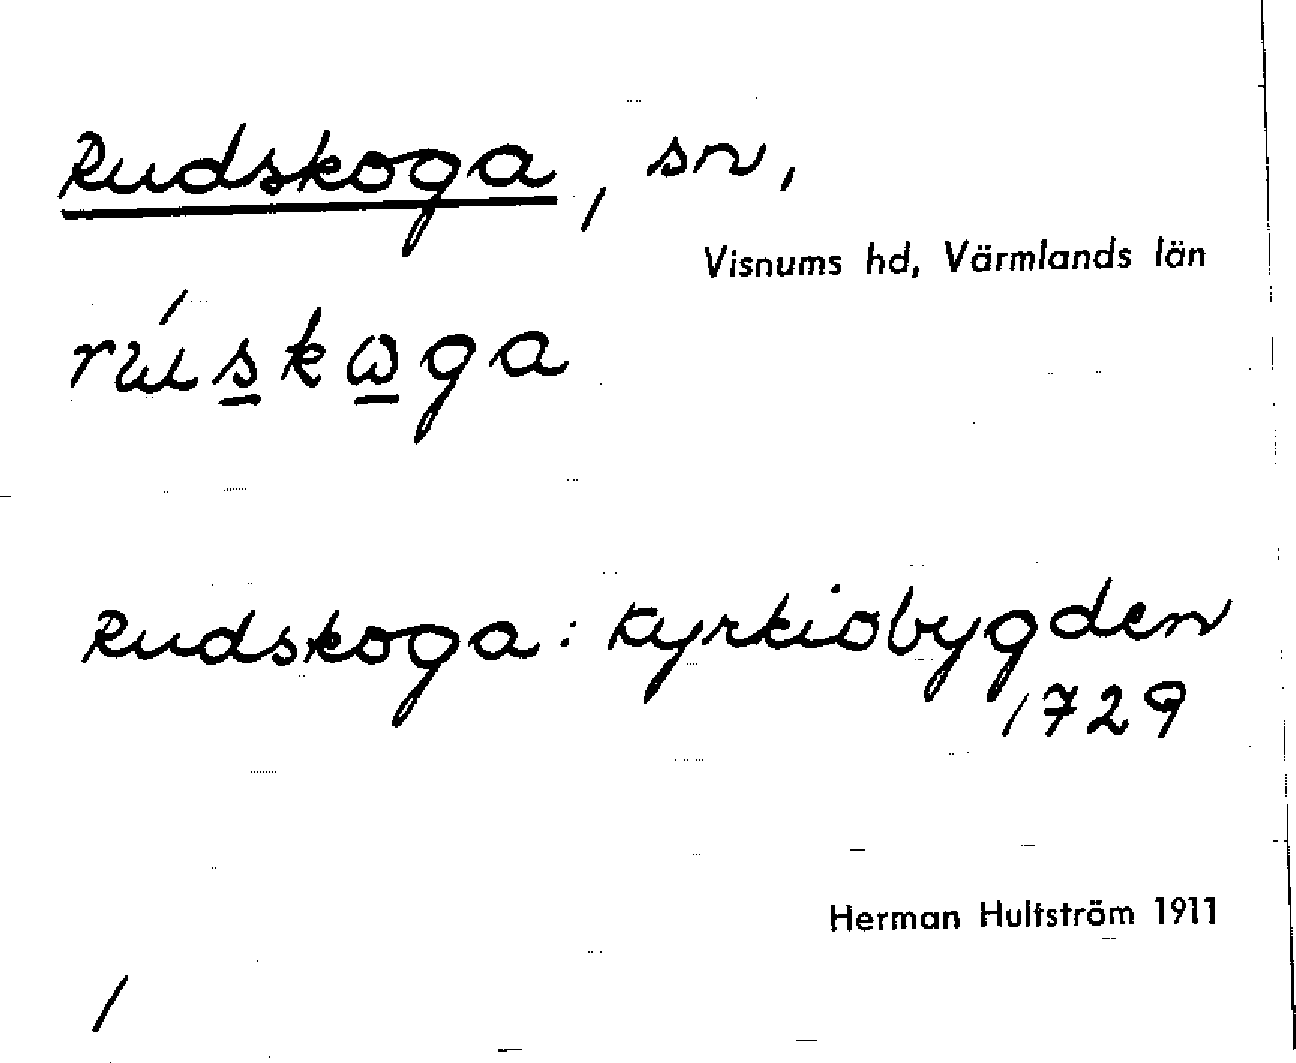 Rudskoga, sn,
Visnums hd, Värmlands län
rúskωga
Rudskoga: Kyrkiobygden
1729
Herman Hultström 1911
/